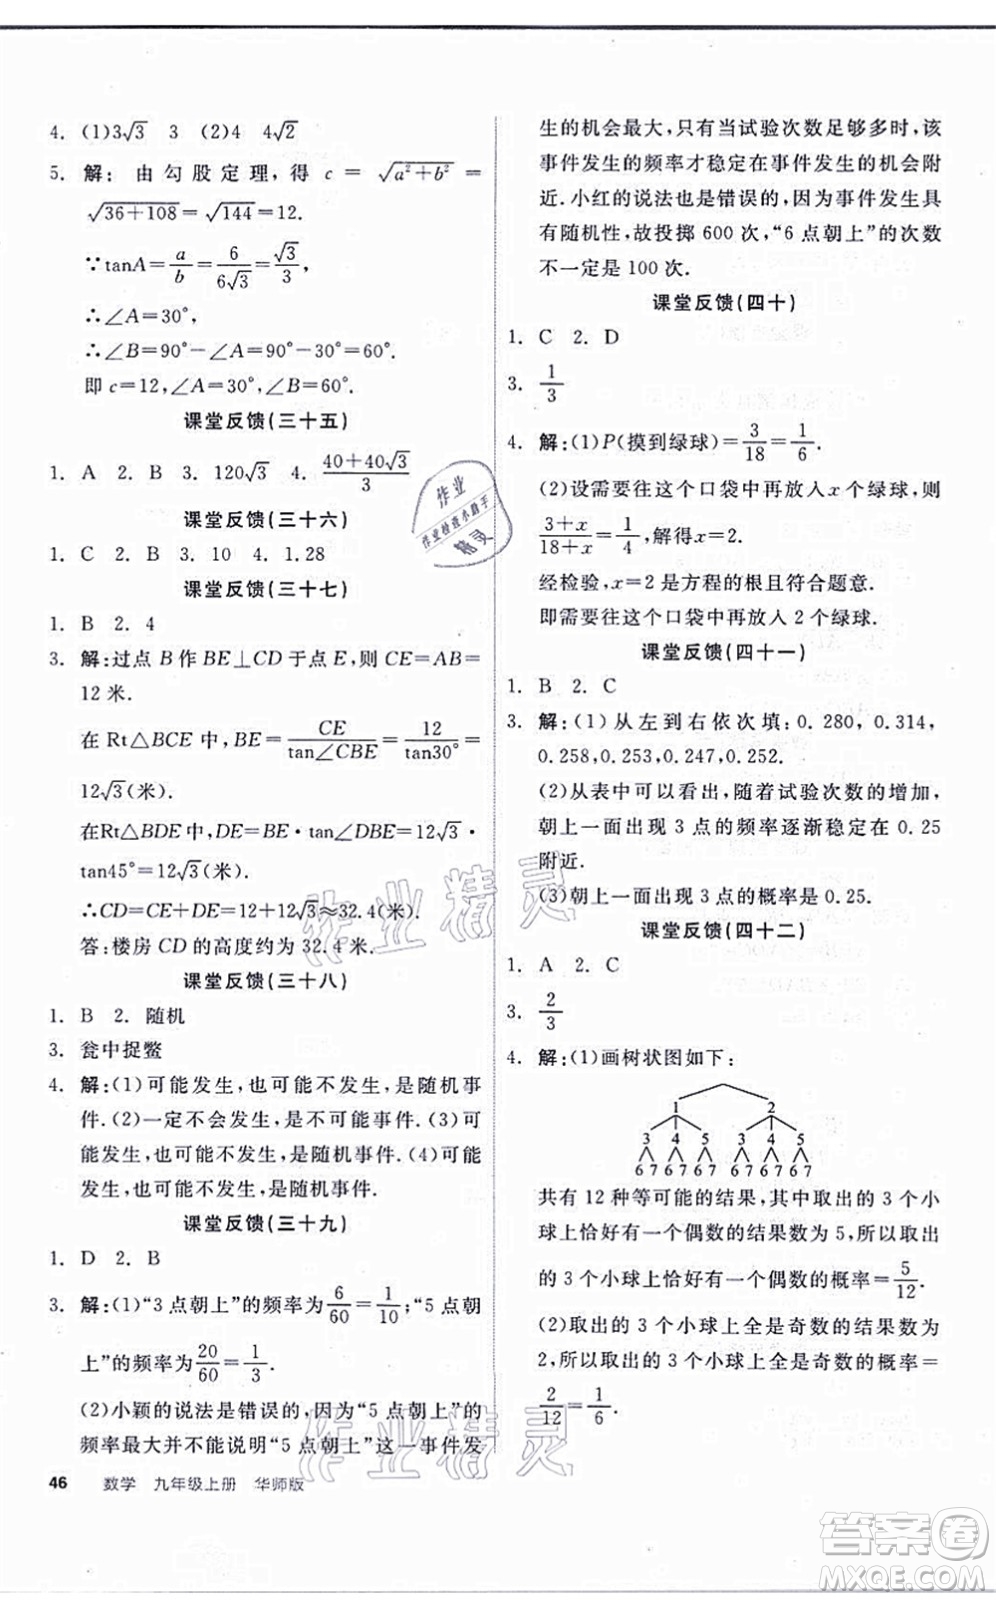 4. (1)3√3 3 (2)4 4√2
5. 解: 由勾股定理,得 c = √(a²+b²) =
√(36+108) = √144 = 12.
∵tanA = a/b = 6/(6√3) = √3/3,
∴∠A=30°,
∴∠B=90°−∠A=90°−30°=60°.
即 c=12,∠A=30°,∠B=60°.
课堂反馈(三十五)
1. A 2. B 3. 120√3 4. (40+40√3)/3
课堂反馈(三十六)
1. C 2. B 3. 10 4. 1.28
课堂反馈(三十七)
1. B 2. 4
3. 解:过点 B 作 BE⊥CD 于点 E,则 CE=AB=
12 米.
在 Rt△BCE 中,BE = CE/tan∠CBE = 12/tan30° =
12√3(米).
在Rt△BDE 中,DE=BE·tan∠DBE=12√3·
tan45°=12√3(米).
∴CD=CE+DE=12+12√3≈32.4(米).
答:楼房 CD 的高度约为 32.4 米.
课堂反馈(三十八)
1. B 2. 随机
3. 瓮中捉鳖
4. 解:(1)可能发生,也可能不发生,是随机事
件.(2)一定不会发生,是不可能事件.(3)可
能发生,也可能不发生,是随机事件.(4)可能
发生,也可能不发生,是随机事件.
课堂反馈(三十九)
1. D 2. B
3. 解:(1)“3 点朝上”的频率为 6/60 = 1/10;“5 点朝
上”的频率为 20/60 = 1/3.
(2)小颖的说法是错误的,因为“5 点朝上”的
频率最大并不能说明“5 点朝上”这一事件发
46 数学 九年级上册 华师版
生的机会最大,只有当试验次数足够多时,该
事件发生的频率才稳定在事件发生的机会附
近.小红的说法也是错误的,因为事件发生具
有随机性,故投掷 600 次,“6 点朝上”的次数
不一定是 100 次.
课堂反馈(四十)
1. C 2. D
3. 1/3
4. 解:(1)P(摸到绿球) = 3/18 = 1/6.
(2)设需要往这个口袋中再放入 x 个绿球,则
(3+x)/(18+x) = 1/4,解得x=2.
经检验,x=2 是方程的根且符合题意.
即需要往这个口袋中再放入 2 个绿球.
课堂反馈(四十一)
1. B 2. C
3. 解:(1)从左到右依次填:0.280,0.314,
0.258,0.253,0.247,0.252.
(2)从表中可以看出,随着试验次数的增加,
朝上一面出现 3 点的频率逐渐稳定在 0.25
附近.
(3)朝上一面出现 3 点的概率是 0.25.
课堂反馈(四十二)
1. A 2. C
3. 2/3
4. 解:(1)画树状图如下:
1 2
3 4 5 3 4 5
6 7 6 7 6 7 6 7 6 7 6 7
共有 12 种等可能的结果,其中取出的 3 个小
球上恰好有一个偶数的结果数为 5,所以取出
的 3 个小球上恰好有一个偶数的概率 = 5/12.
(2)取出的 3 个小球上全是奇数的结果数为
2,所以取出的 3 个小球上全是奇数的概率 =
2/12 = 1/6.
作业
作业检查小助手
精灵
作业精灵
作业精灵
答案卷
MXQE.COM